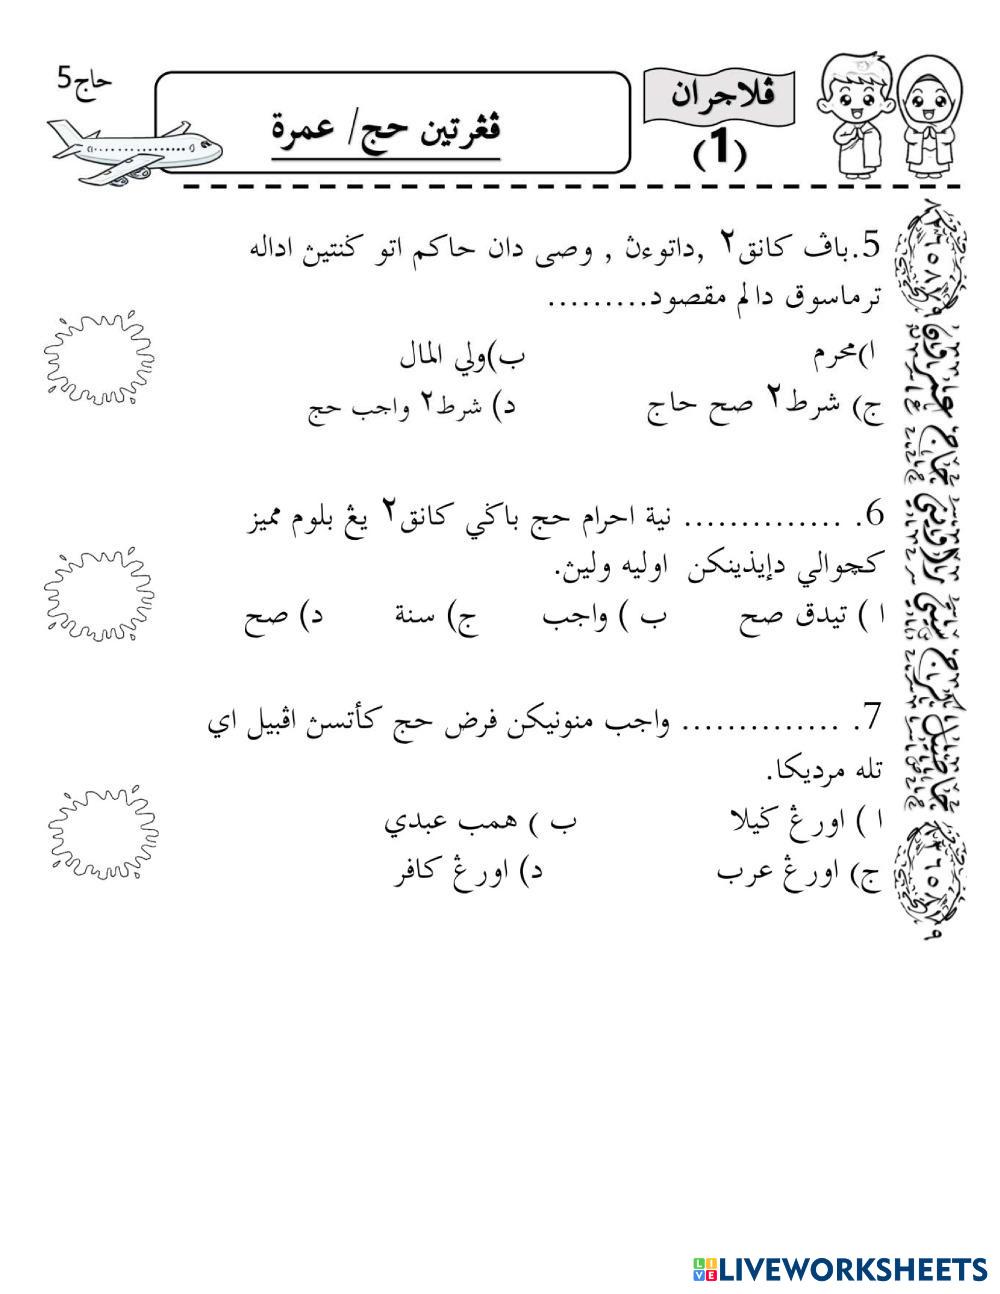 حاج5
ڤلاجران
(1)
ڤڠرتين حج/ عمرة
5.باڤ كانق٢ ,داتوءڽ , وصى دان حاكم اتو ݢنتيڽ اداله
ترماسوق دالم مقصود.........
ا)محرم
ب)ولي المال
ج) شرط٢ صح حاج
د) شرط٢ واجب حج
6. .............. نية احرام حج باݢي كانق٢ يڠ بلوم مميز
كچوالي دإيذينكن اوليه وليڽ.
ا ) تيدق صح ب ) واجب ج) سنة د) صح
7. .............. واجب منونيكن فرض حج كأتسڽ اڤبيل اي
تله مرديكا.
ا ) اورڠ ݢيلا
ب ) همب عبدي
ج) اورڠ عرب
د) اورڠ كافر
LIVEWORKSHEETS